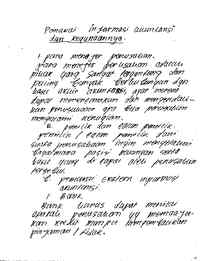 Pemakai informasi akuntansi
dan kegunaannya.
1 para manajer perusahaan.
para manajer perusahaan adalah
pihak yang sangat tergantung dan
paling banyak berhubungan dgn
hasil akhir akuntansi, agar mereka
dapat merencanakan dan mengendali-
kan perusahaan apa bila perusahaan
mengalami kerugian.
pemilik dan calon pemilik
pemilik / calon pemilik dari
suatu perusahaan ingin mengetahui
bagaimana posisi keuangan serta
hasil yang di capai oleh perusahaan
tersebut.
pemakai ekstern informasi
akuntansi.
1 Bank
Bank harus dapat menilai
apakah perusahaan yg mengaju-
kan kredit mampu mengembalikan
pinjaman / tidak.